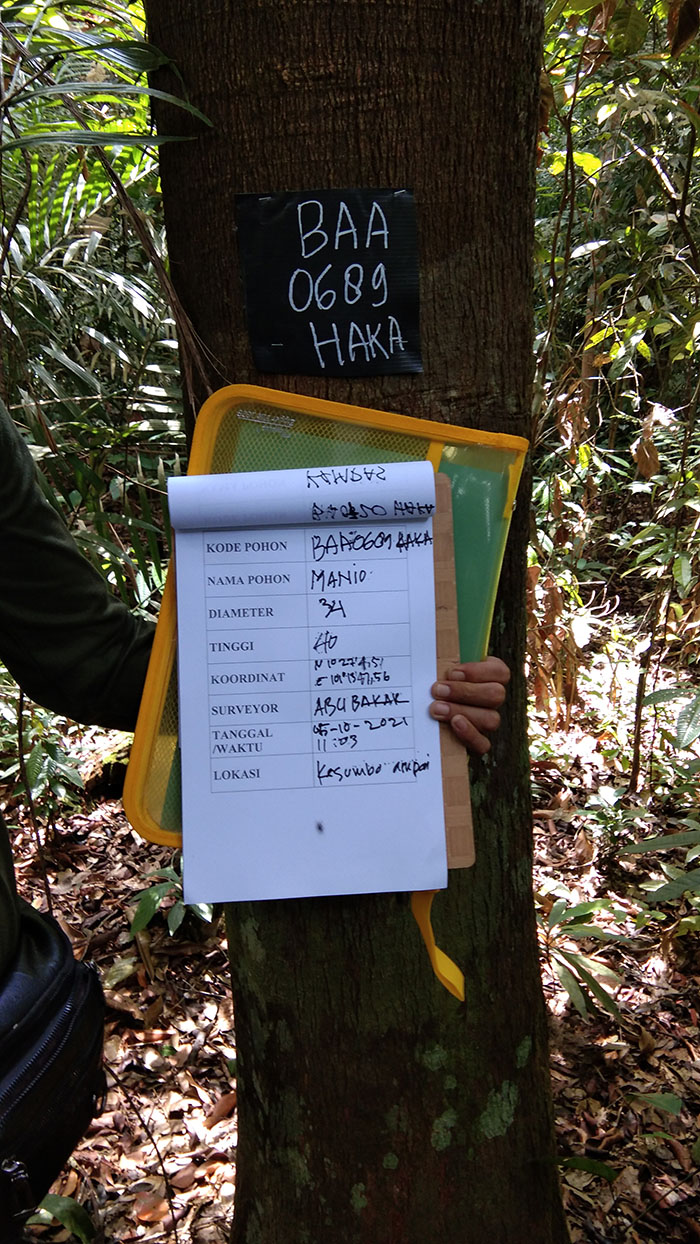 BAA
0689
HAKA
KODE POHON BAA0689 HAKA
NAMA POHON MANIO
DIAMETER 34
TINGGI 40
KOORDINAT
SURVEYOR ABU BAKAR
TANGGAL 05-10-2021
/WAKTU 11:03
LOKASI Kesumbo ampai